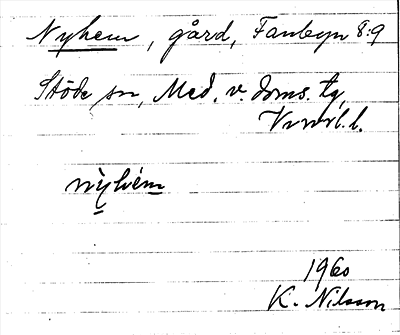 Nyhem, gård, Fanbyn 8:9
Stöde sn, Med. v. doms. tg,
Vnrrl. l.
nỳhém
1960
K. Nilsson